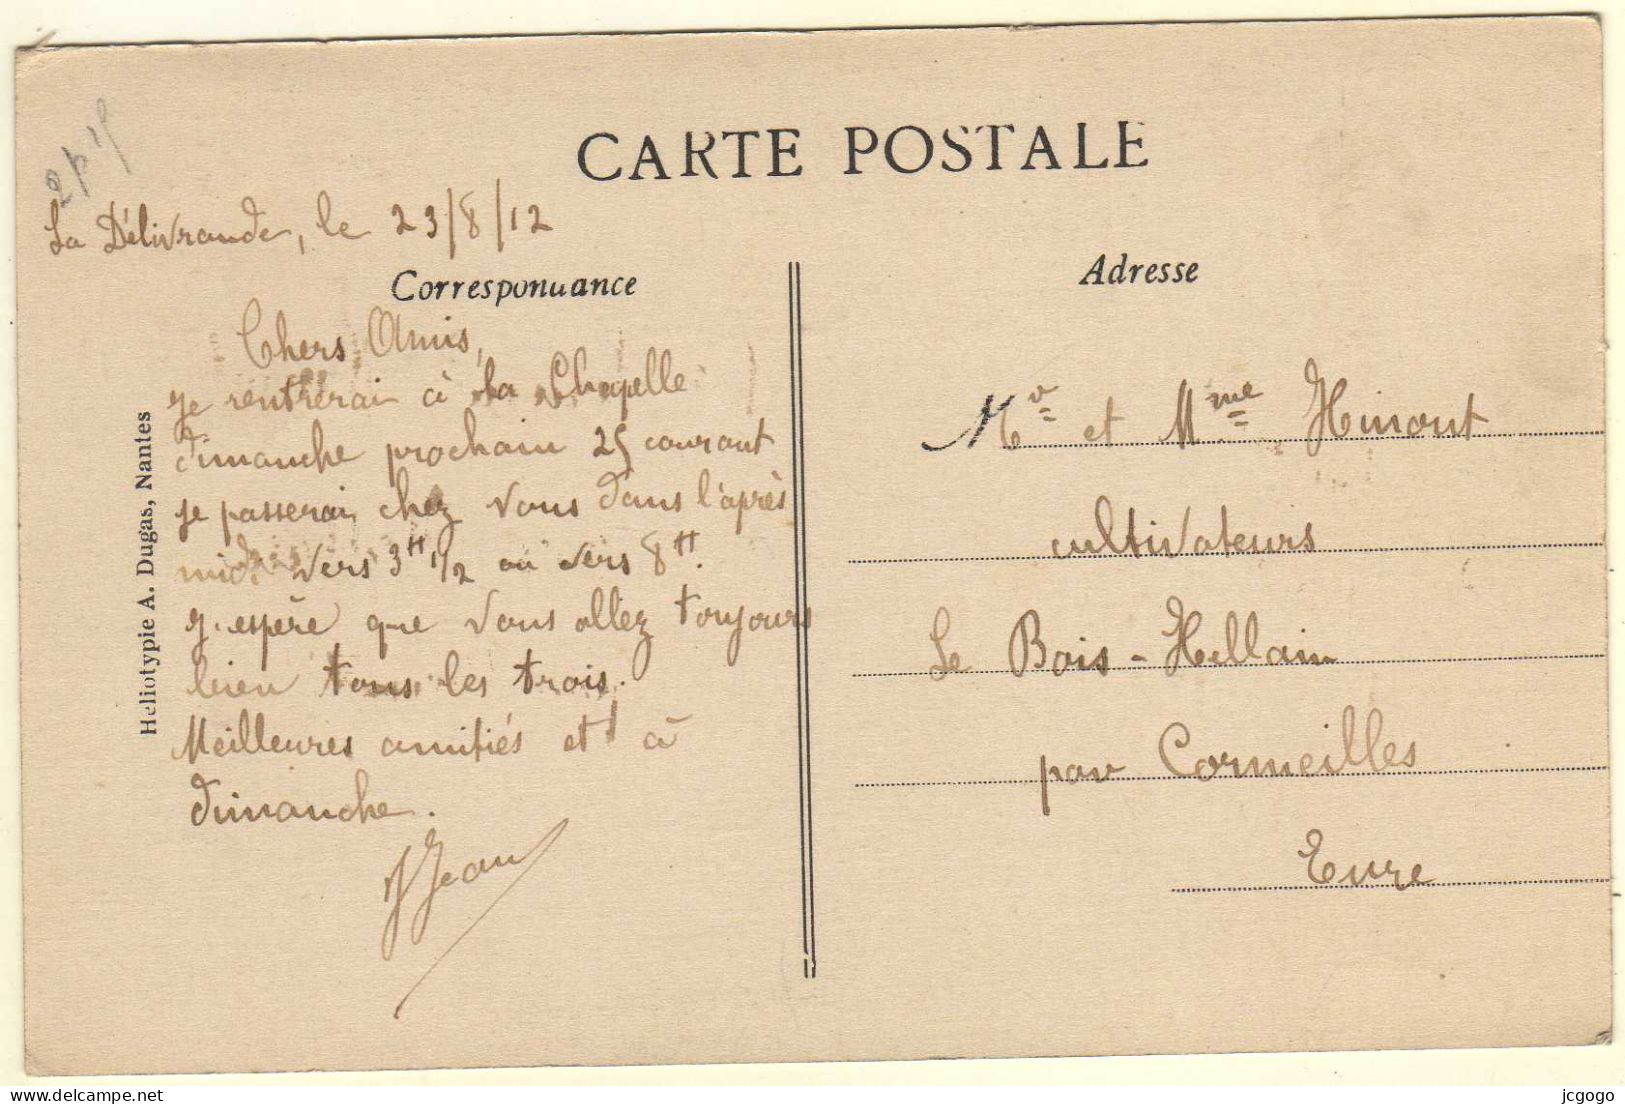 CARTE POSTALE
La Délivrande, le 23/8/12
Correspondance
Chers Amis,
je rentrerai à la Chapelle
dimanche prochain 25 courant
je passerai chez vous dans l'après
midi vers 3H 1/2 ou vers 8H.
j'espère que vous allez toujours
bien tous les trois.
Meilleures amitiés et à
dimanche.
Jean
Héliotypie A. Dugas, Nantes
Adresse
Mr et Mme Hinout
cultivateurs
Le Bois-Hellain
par Cormeilles
Eure
delcampe.net
jcgogo